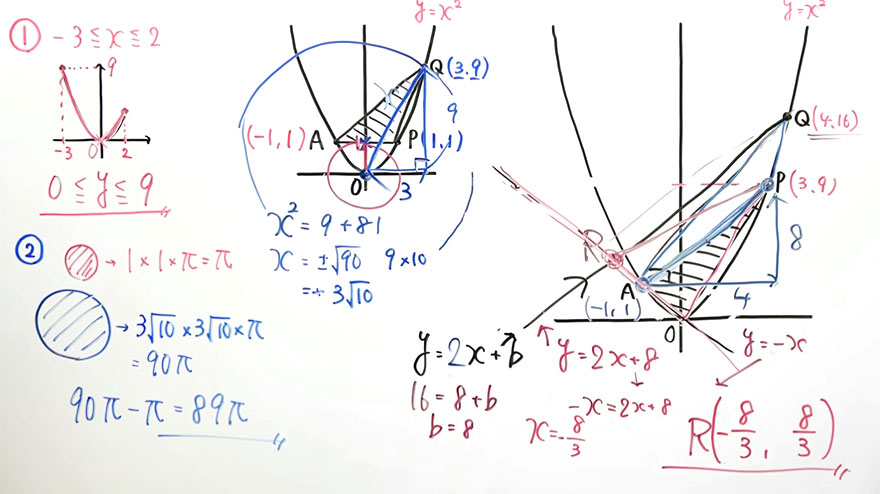 ① -3 ≦ x ≦ 2
9
-3 0 2
0 ≦ y ≦ 9
② → 1 × 1 × π = π
→ 3√10 × 3√10 × π
= 90π
90π - π = 89π
y = x²
Q (3.9)
9
(-1, 1) A 1 P (1, 1)
O
3
x² = 9 + 81
x = ±√90 9 × 10
= ÷ 3√10
y = x²
Q (4, 16)
P (3.9)
R
8
A
(-1, 1)
4
O
y = 2x + b
y = 2x + 8
y = -x
16 = 8 + b
b = 8
-x = 2x + 8
x = -8/3
R(-8/3, 8/3)